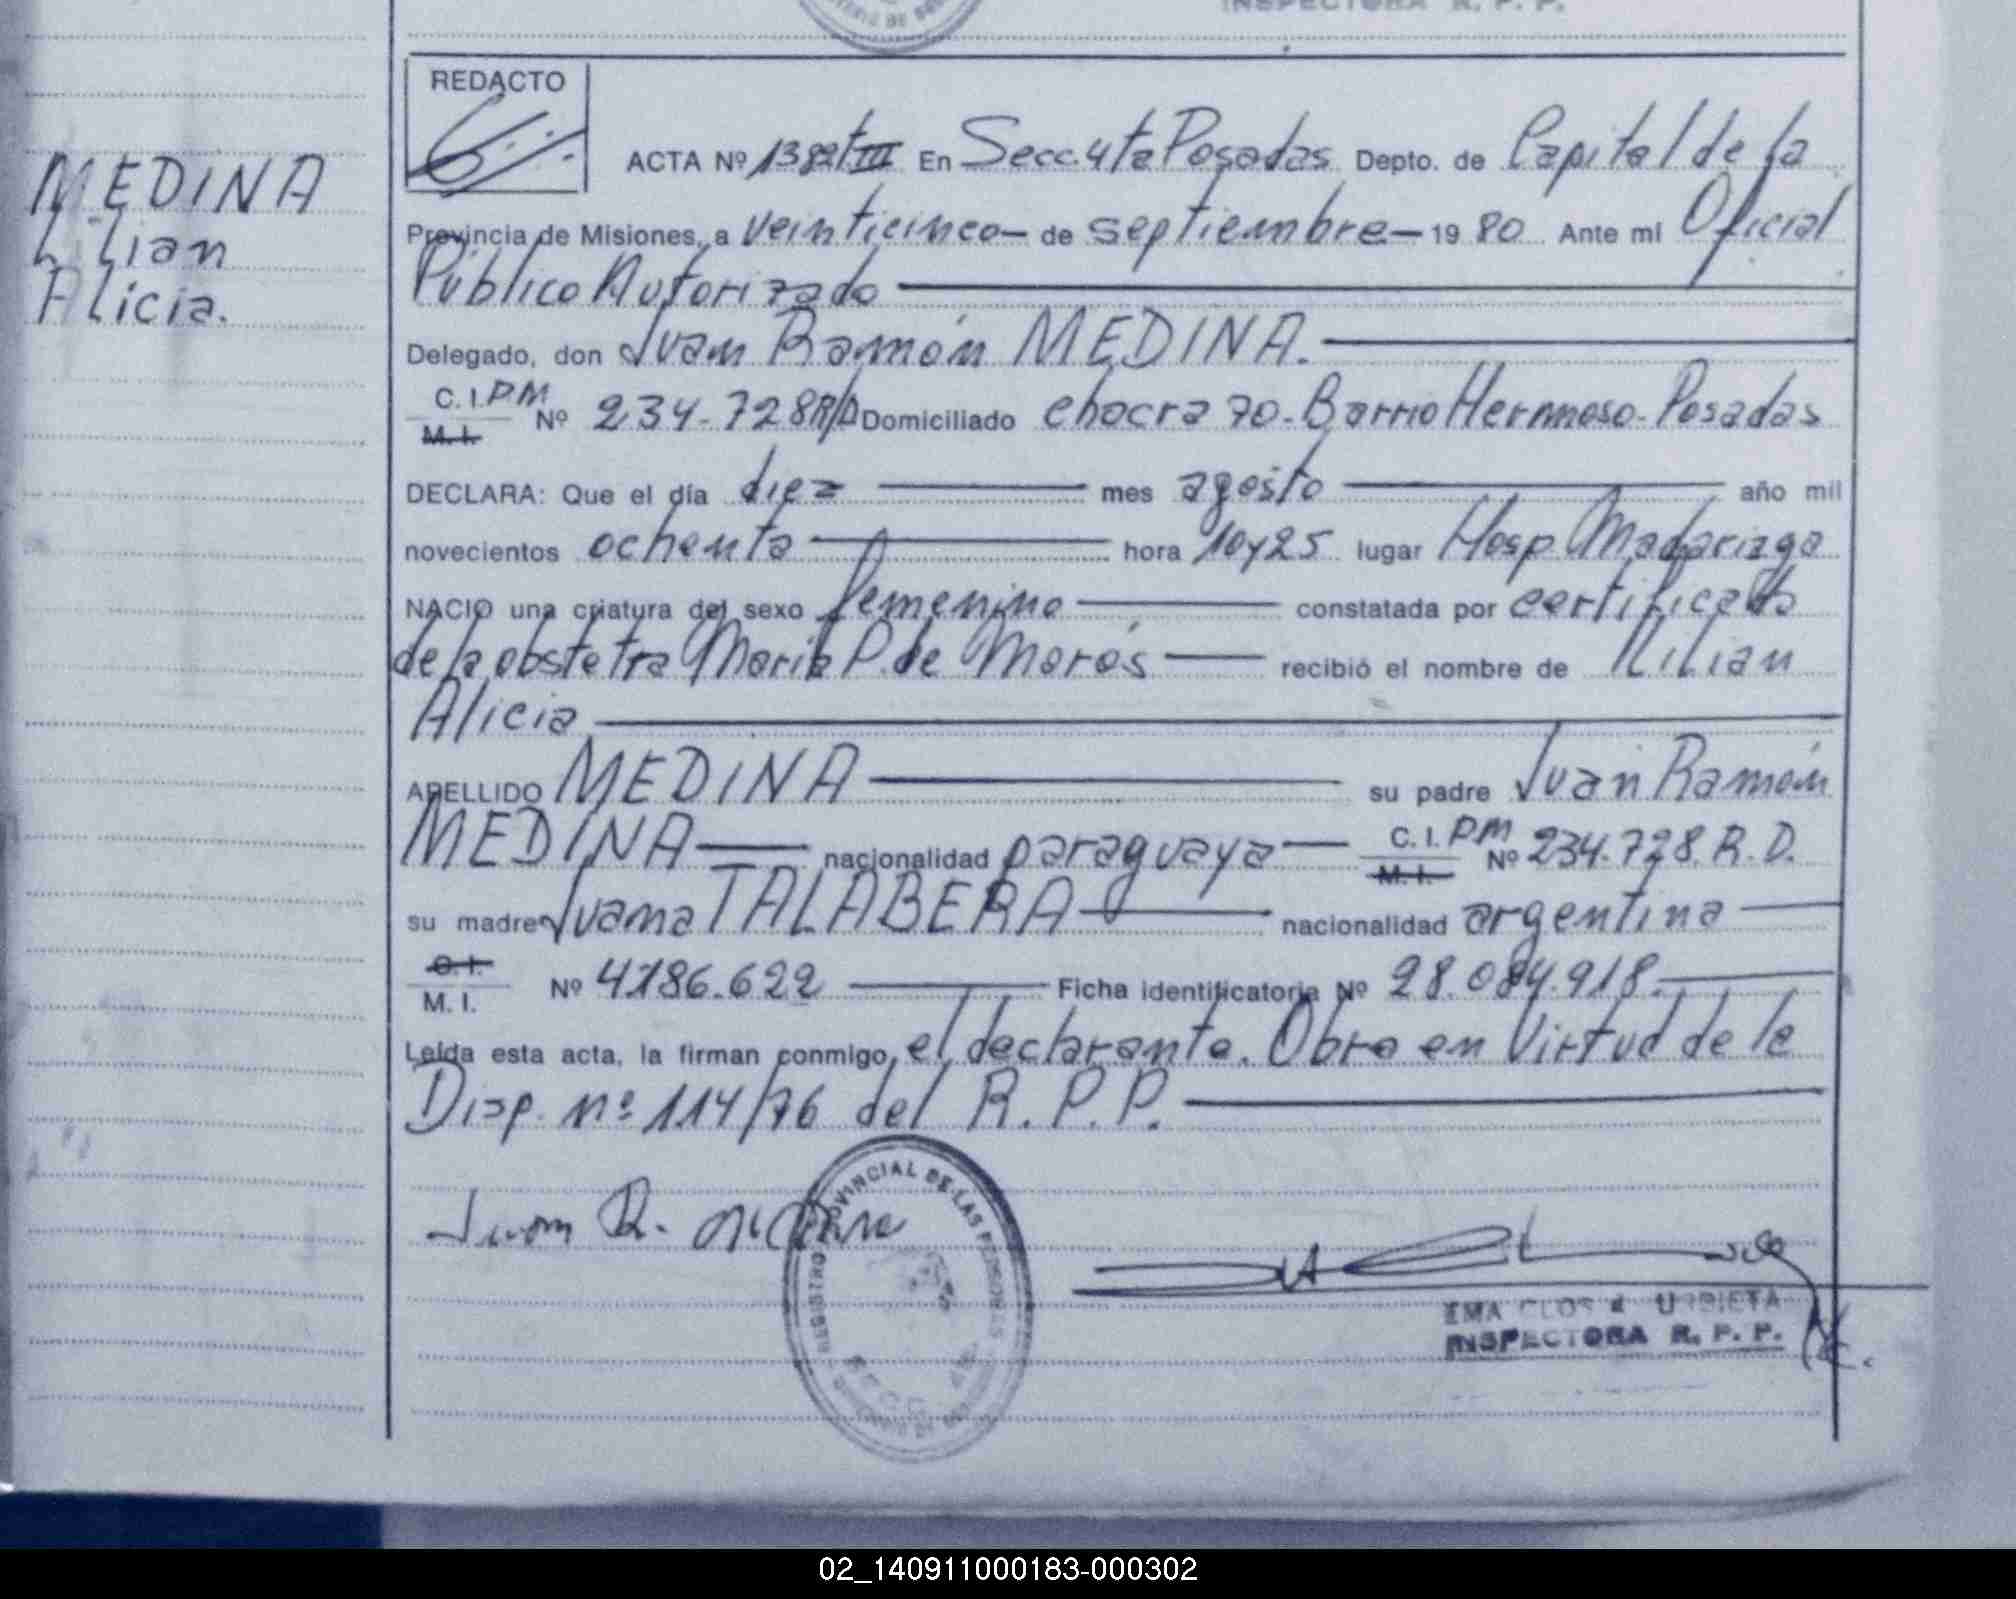 INSPECTORA R. P. P.
REDACTO
MEDINA
Lilian
Alicia.
ACTA Nº 1382 t III En Secc. 4ta Posadas Depto. de Capital de la
Provincia de Misiones, a veinticinco — de septiembre — 19 80 Ante mi Oficial
Público Autorizado
Delegado, don Juan Ramón MEDINA.
C. I. PM Nº 234-728 R/D Domiciliado chacra 70 - Barrio Hermoso - Posadas
M. I.
DECLARA: Que el día diez mes agosto año mil
novecientos ochenta hora 10y25 lugar Hosp. Madariaga
NACIO una criatura del sexo femenino constatada por certificado
de la obstetra María P. de Morós recibió el nombre de Lilian
Alicia
APELLIDO MEDINA su padre Juan Ramón
MEDINA nacionalidad paraguaya C. I. PM Nº 234.728. R. D.
M. I.
su madre Juana TALABERA nacionalidad argentina
C. I.
M. I. Nº 4.186.622 Ficha identificatoria Nº 28.084.918.
Leída esta acta, la firman conmigo, el declarante. Obra en Virtud de la
Disp. nº 114/76 del R. P. P.
Juan R. Medina
REGISTRO PROVINCIAL DE LAS PERSONAS
SECC. 4ta
INSPECTORA R. P. P.
02_140911000183-000302